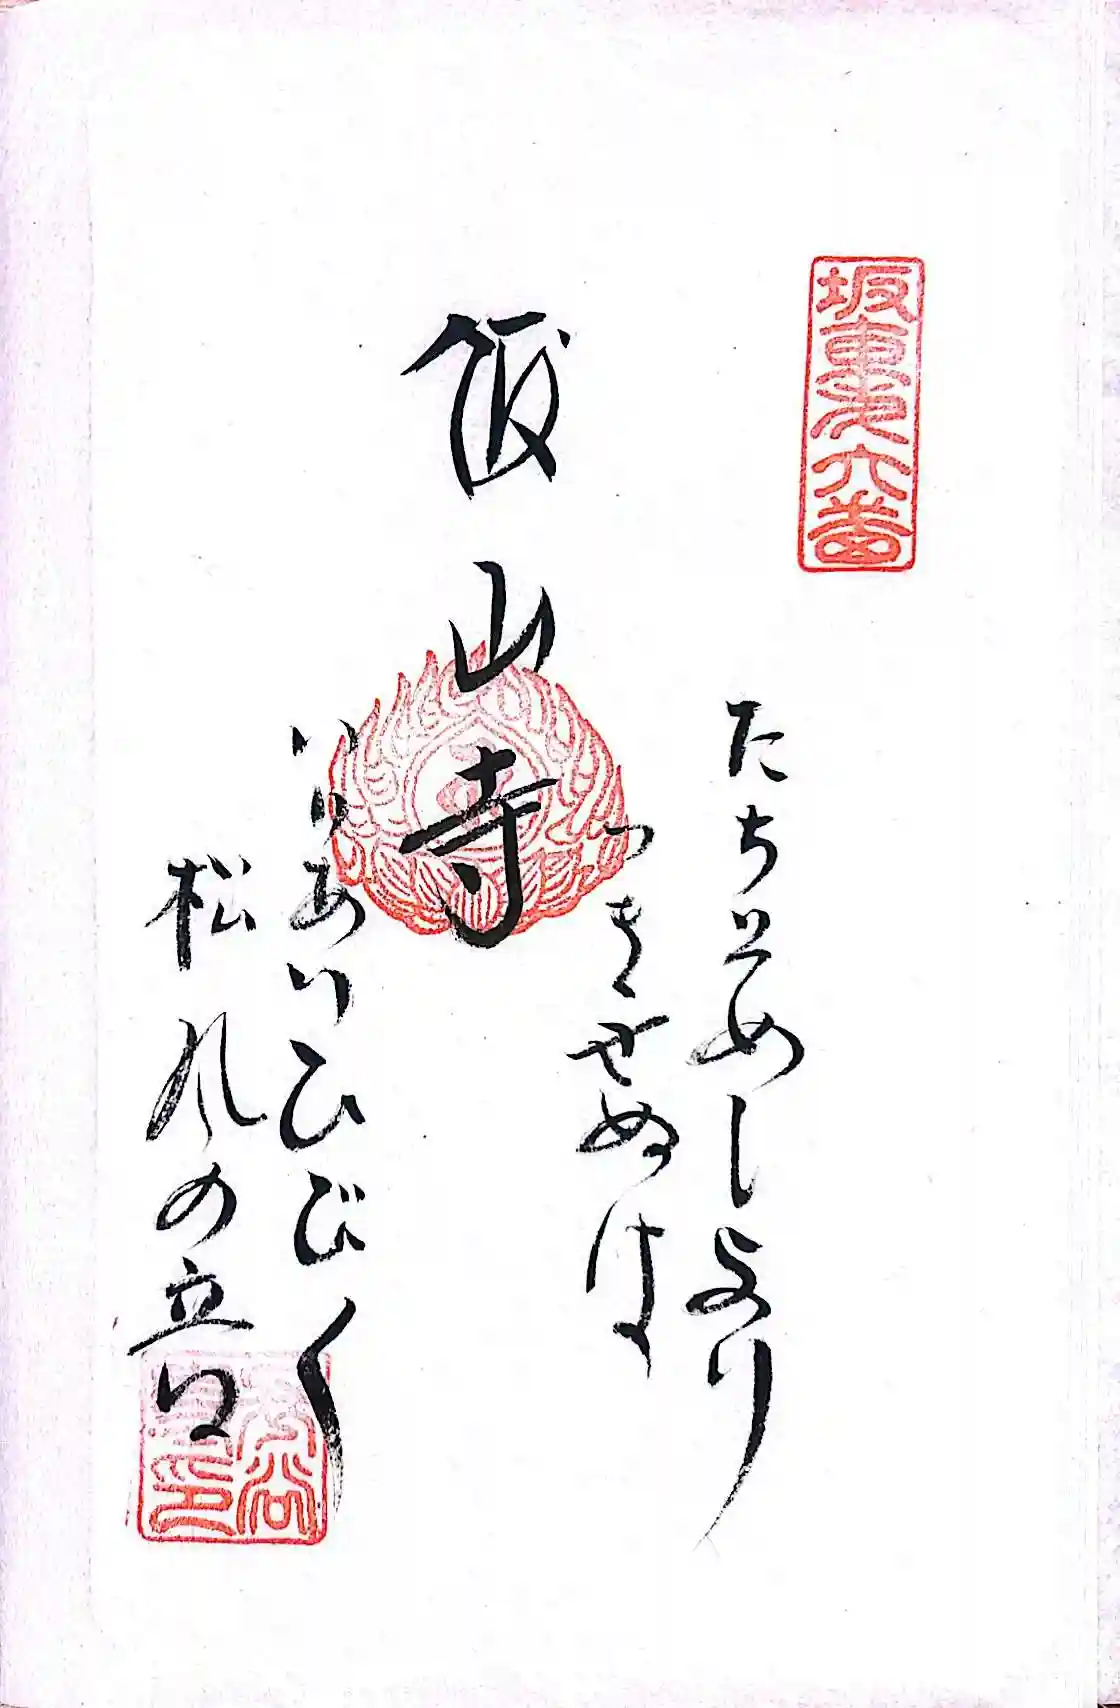 坂東第六番
たちそめしより
つきせぬは
飯山寺
いりあいひびく
松風の音
長谷
寺印